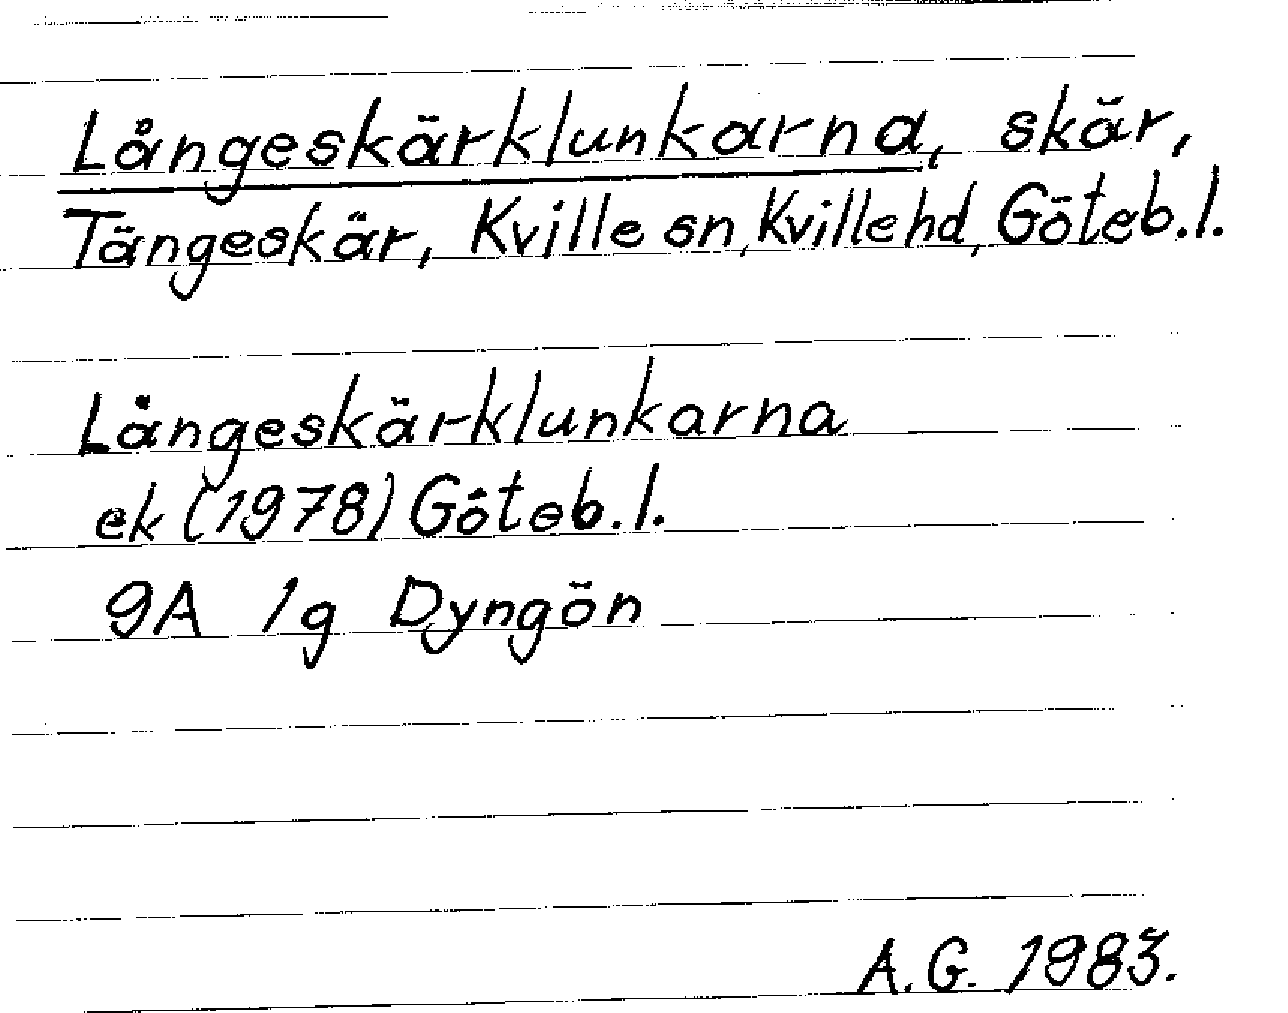 Långeskärklunkarna, skär,
Tängeskär, Kville sn, Kville hd, Göteb.l.
Långeskärklunkarna
ek (1978) Göteb.l.
9A 1g Dyngön
A.G. 1983.